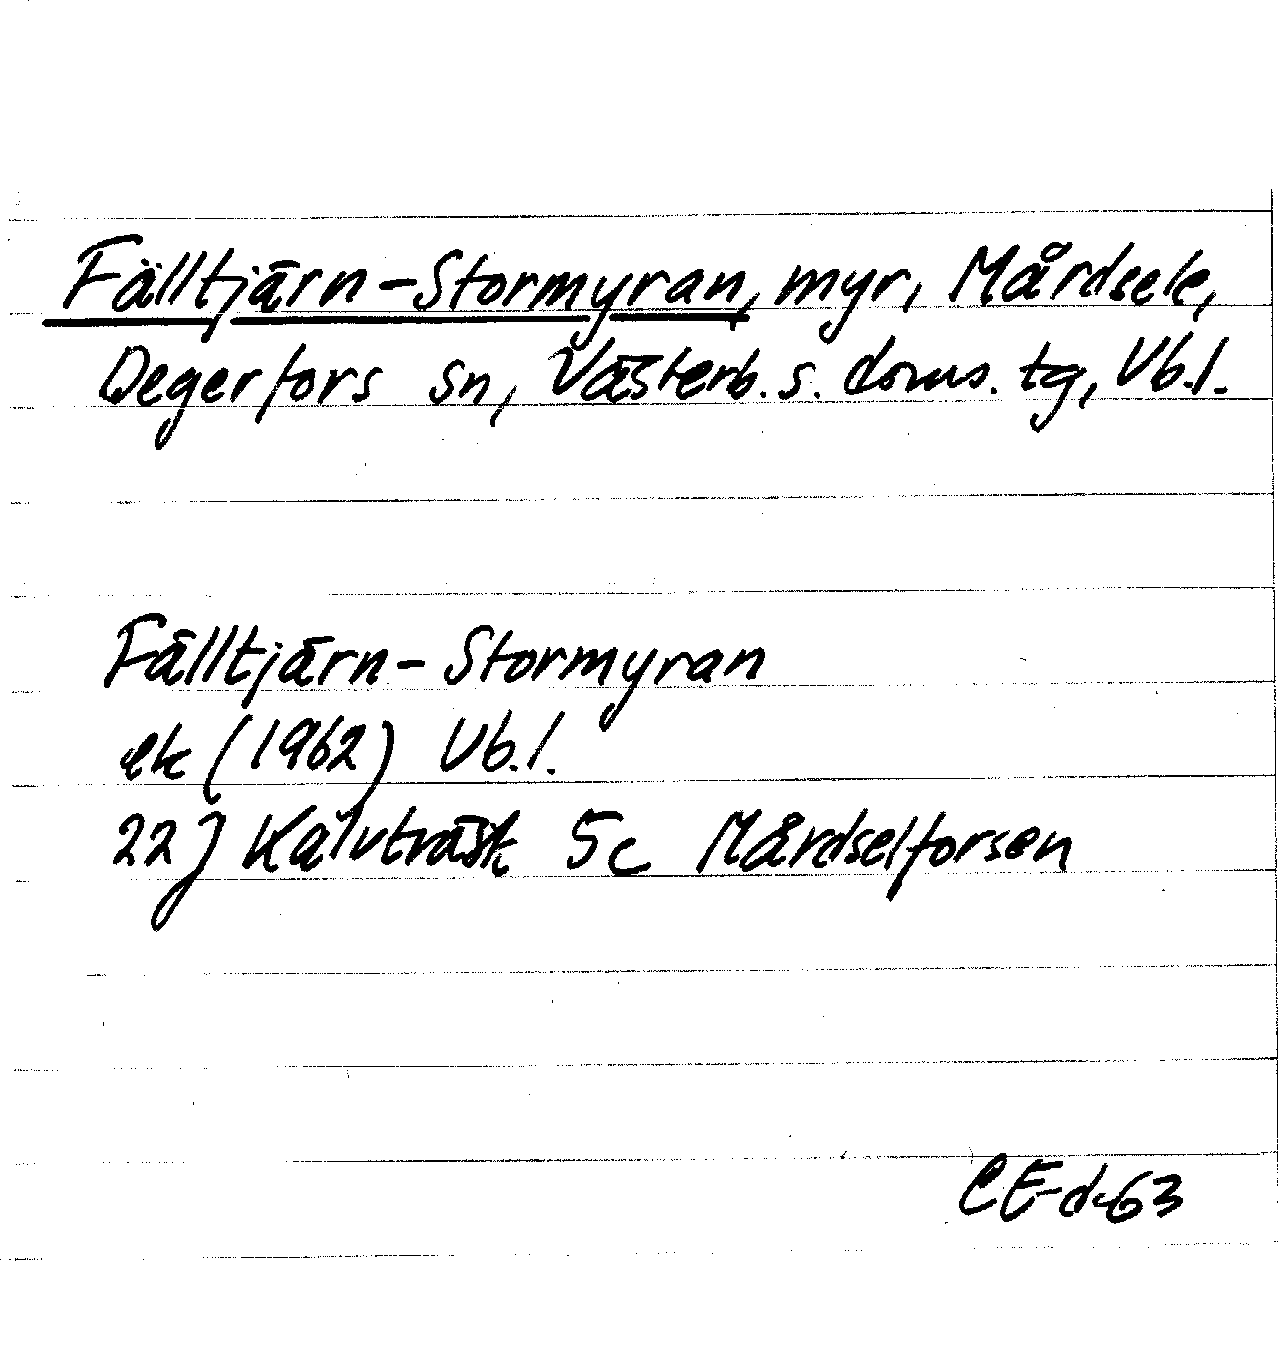 Fälltjärn-Stormyran, myr, Mårdsele,
Degerfors sn, Västerb. s. doms. tg, Vb.l.
Fälltjärn-Stormyran
ek (1962) Vb.l.
22J Kalvträsk 5c Mårdselforsen
CE-d-63